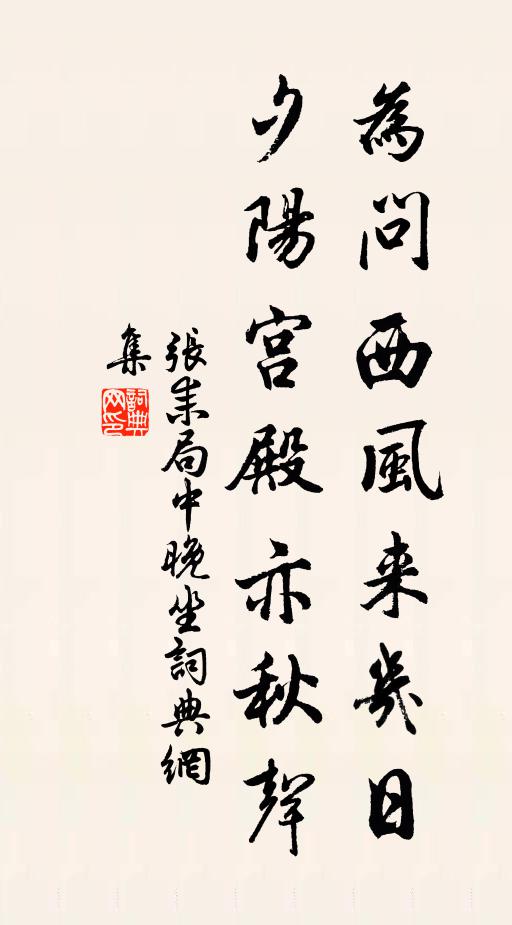 為問西風来幾日
夕陽宫殿亦秋聲
張耒局中晚坐詞典網
集
詞典
网印